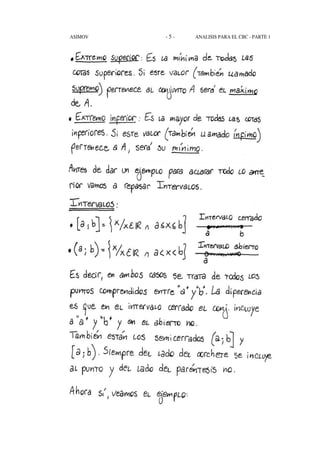 ASIMOV - 5 - ANALISIS PARA EL CBC - PARTE 1
• Extremo superior: Es la mínima de todas las
cotas superiores. Si este valor (también llamado
supremo) pertenece al conjunto A será el máximo
de A.
• Extremo inferior: Es la mayor de todas las cotas
inferiores. Si este valor (también llamado ínfimo)
pertenece a A, será su mínimo.
Antes de dar un ejemplo para aclarar todo lo ante
rior vamos a repasar Intervalos.
Intervalos:
• [a;b] = {x/x∈ℝ ∧ a≤x≤b} Intervalo cerrado
a b
• (a;b) = {x/x∈ℝ ∧ a<x<b} Intervalo abierto
a
Es decir, en ambos casos se trata de todos los
puntos comprendidos entre "a" y "b". La diferencia
es que en el intervalo cerrado el conj. incluye
a "a" y "b" y en el abierto no.
También están los semicerrados (a;b] y
[a;b). Siempre del lado del corchete se incluye
al punto y del lado del paréntesis no.
Ahora sí, veamos el ejemplo: